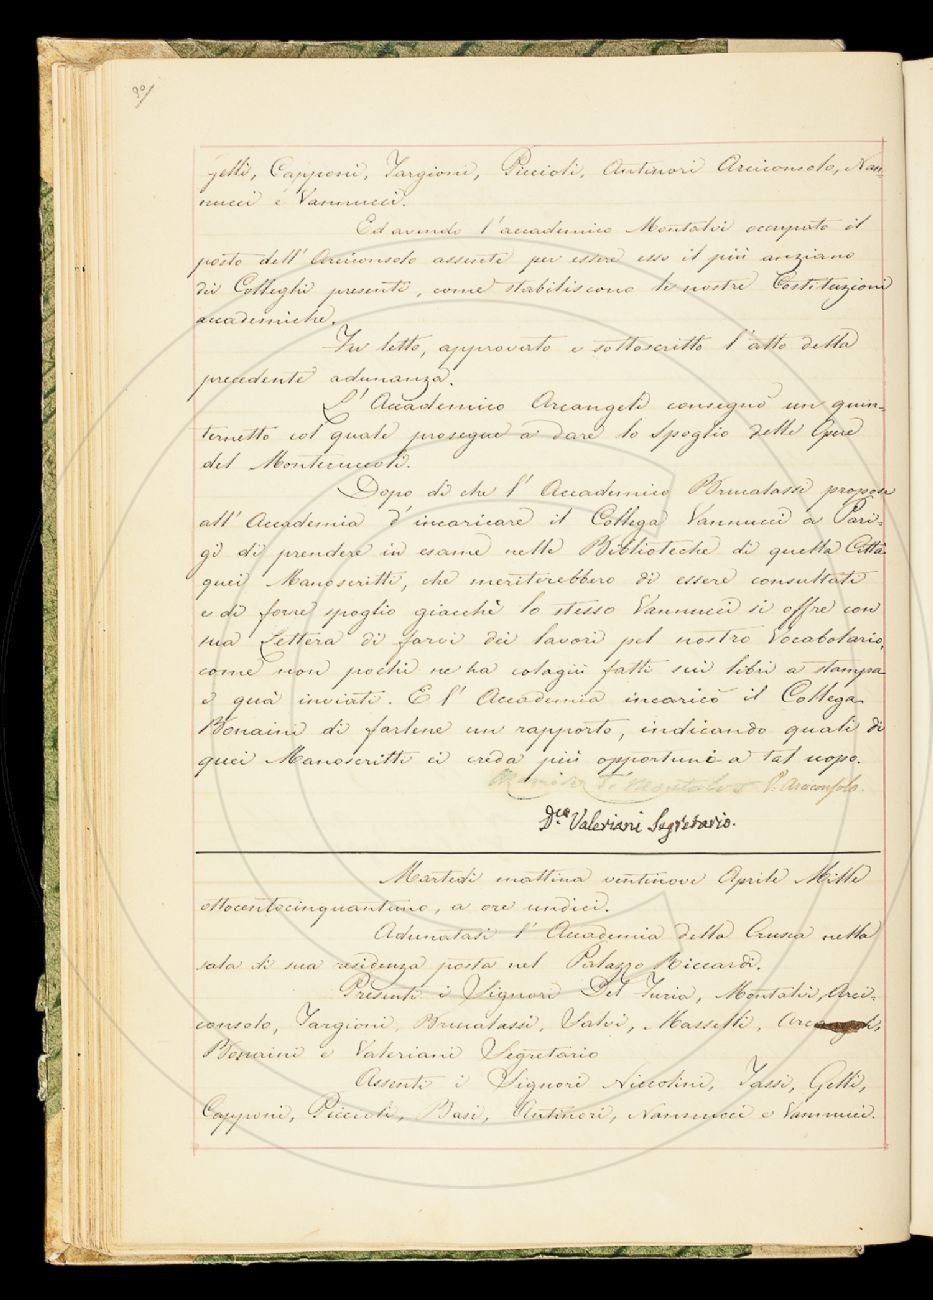 90/
Gelli, Capponi, Targioni, Piccioli, Antinori Arciconsolo, Nan-
nucci e Vannucci.
Ed avendo l'accademico Montalvi occupato il
posto dell'Arciconsolo assente per essere esso il più anziano
dei Colleghi presenti, come stabiliscono le nostre Costituzioni
accademiche.
Fu letto, approvato e sottoscritto l'atto della
precedente adunanza.
L'Accademico Arcangeli consegnò un quin-
ternetto col quale prosegue a dare lo spoglio delle Opere
del Montecuccoli.
Dopo di che l'Accademico Brucalassi propose
all'Accademia d'incaricare il Collega Vannucci a Pari-
gi di prendere in esame nelle Biblioteche di quella Città
quei Manoscritti, che meriterebbero di essere consultati
e di farne spoglio giacchè lo stesso Vannucci si offre con
sua Lettera di farvi dei lavori pel nostro Vocabolario,
come non pochi ne ha colagiù fatti sui libri a stampa
e quà inviati. E l'Accademia incaricò il Collega
Bonaini di farlene un rapporto, indicando quali di
quei Manoscritti ei creda più opportuni a tal uopo.
Montalvo P. Arciconsolo.
Dco. Valeriani Segretario.
Martedì mattina ventinove Aprile Mille
ottocentocinquantuno, a ore undici.
Adunatasi l'Accademia della Crusca nella
sala di sua residenza posta nel Palazzo Riccardi.
Presenti i Signori Del Furia, Montalvi, Arci-
consolo, Targioni, Brucalassi, Salvi, Masselli, Arcangeli,
Bonaini e Valeriani Segretario
Assenti i Signori Niccolini, Tassi, Gelli,
Capponi, Piccioli, Basi, Antinori, Nannucci e Vannucci.